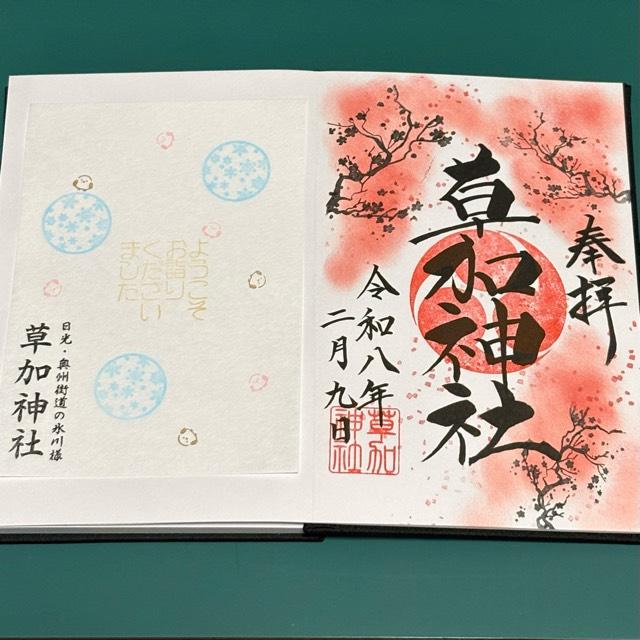 奉拝
草加神社
令和八年
二月九日
草加
神社
ようこそ
お詣り
ください
ました
日光・奥州街道の氷川様
草加神社